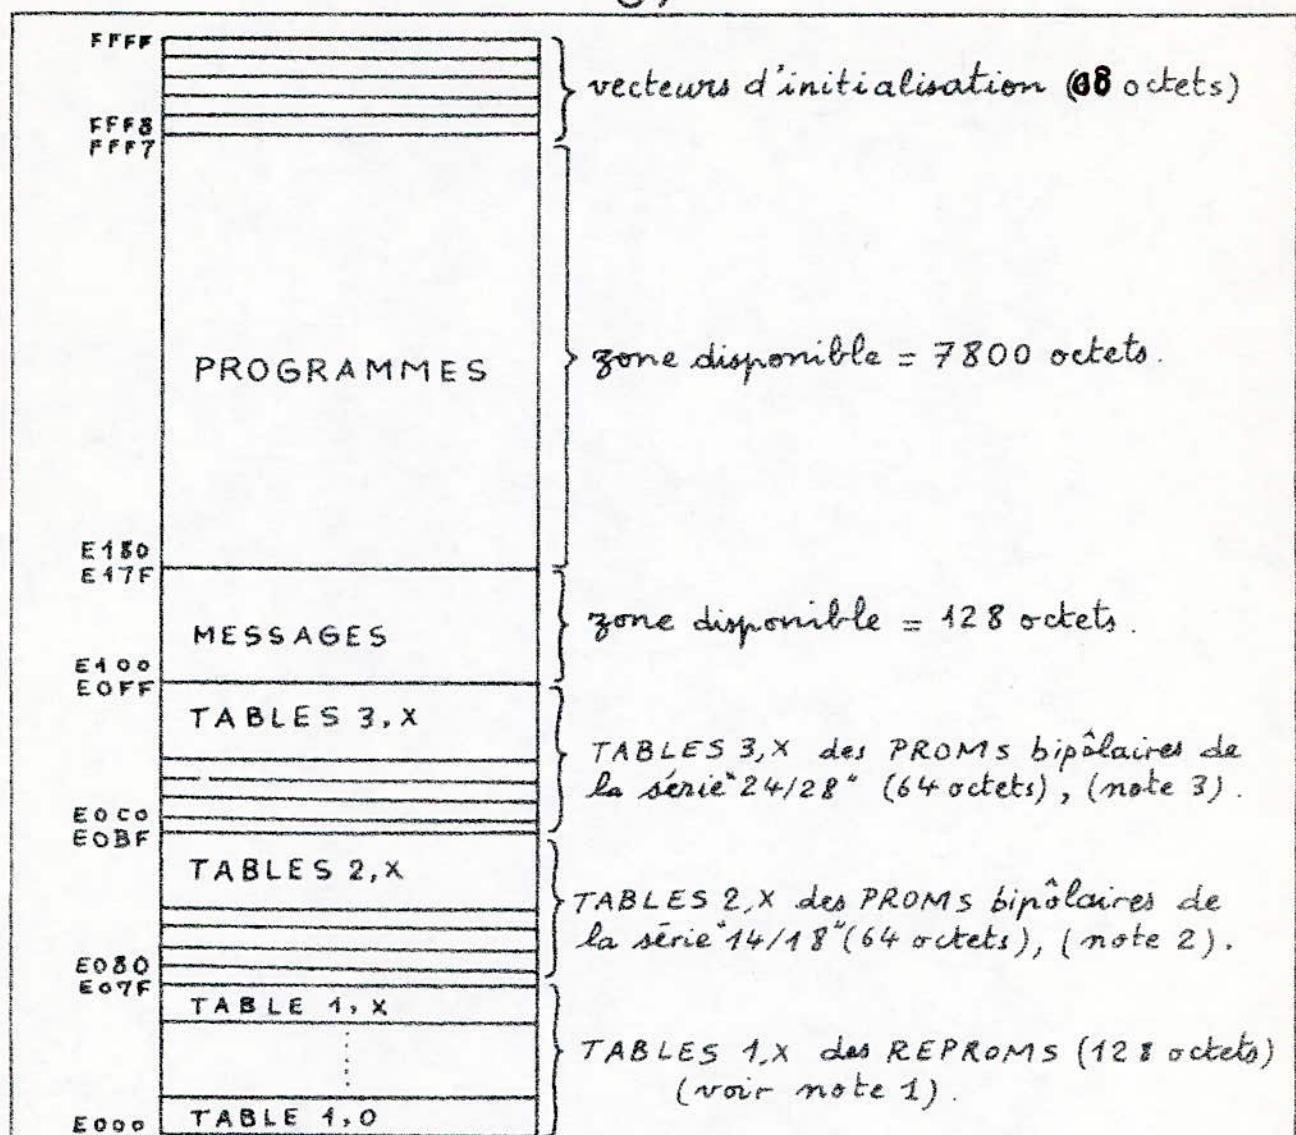 FFFF
vecteurs d'initialisation (08 octets)
FFF8
FFF7
PROGRAMMES
zone disponible = 7800 octets.
E180
E17F
MESSAGES
zone disponible = 128 octets.
E100
E0FF
TABLES 3,X
TABLES 3,X des PROMs bipôlaires de
la série "24/28" (64 octets), (note 3).
E0C0
E0BF
TABLES 2,X
TABLES 2,X des PROMs bipôlaires de
la série "14/18" (64 octets), (note 2).
E080
E07F
TABLE 1,X
TABLES 1,X des REPROMs (128 octets)
(voir note 1).
E000
TABLE 1,0